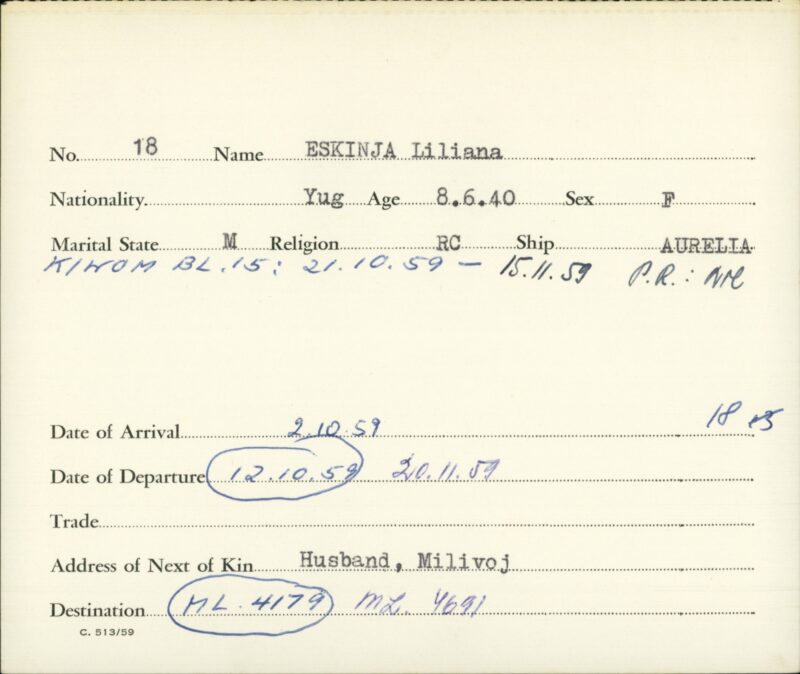 No. 18 Name ESKINJA Liliana
Nationality. Yug Age 8.6.40 Sex F
Marital State M Religion RC Ship AURELIA
KIWOM BL.15: 21.10.59 - 15.11.59 P.R.: Nil
18
Date of Arrival 2.10.59
Date of Departure 12.10.59 20.11.59
Trade
Address of Next of Kin Husband, Milivoj
Destination ML. 4179 ML. 4691
C. 513/59